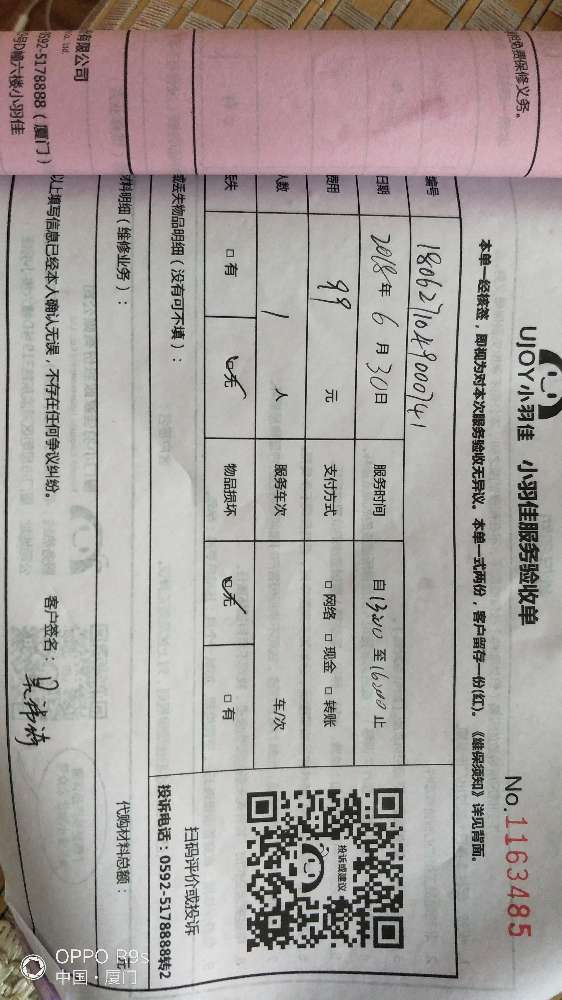 UJOY小羽佳 小羽佳服务验收单
No.1163485
本单一经核签，即视为对本次服务验收无异议。本单一式两份，客户留存一份(红)。《维保须知》详见背面。
编号 180627104900741
日期 2018年 6月 30日 服务时间 自 13:00 至 16:00 止
费用 99 元 支付方式 □ 网络 □ 现金 □ 转账
人数 1 人 服务车次 车/次
丢失 □ 有 □ 无 物品损坏 □ 无 □ 有
或丢失物品明细（没有可不填）：
材料明细（维修业务）： 代购材料总额： 元
以上填写信息已经本人确认无误，不存在任何争议纠纷。 客户签名：
投诉或建议
扫码评价或投诉
投诉电话：0592-5178888转2
免费保修义务。
有限公司
CO., Ltd.
0592-5178888（厦门）
号D幢六楼小羽佳
OPPO R9s
中国·厦门